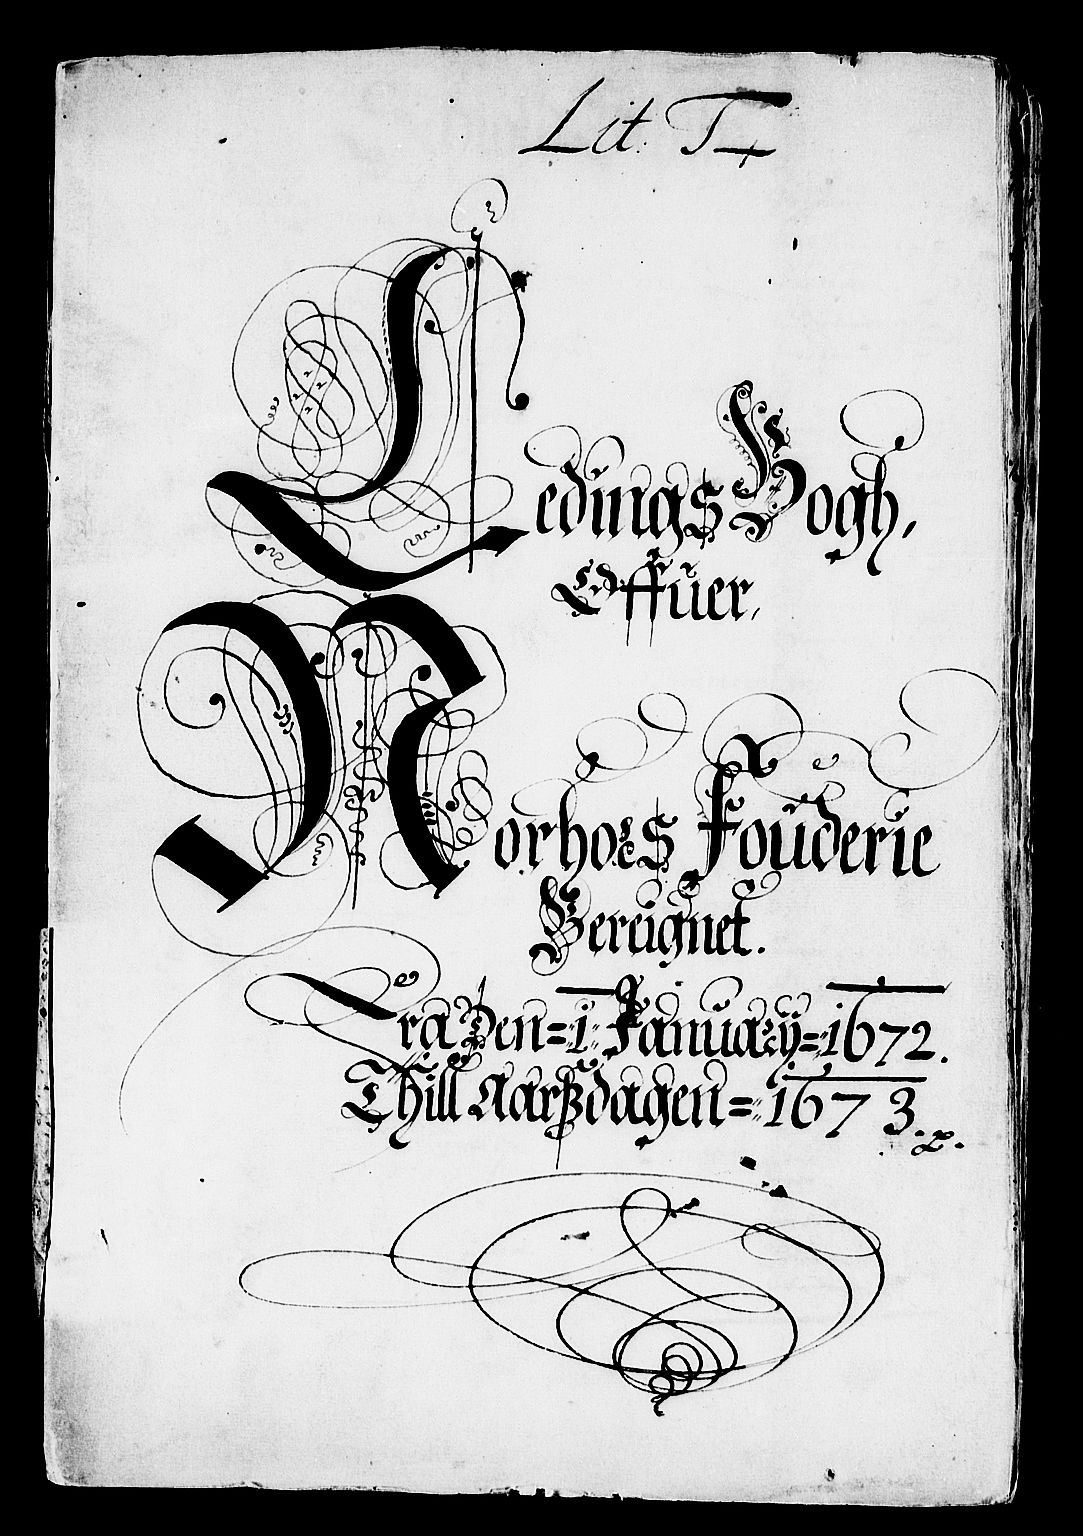 Lit: T
Ledings Bogh,
Offuer,
Norhoes Fouderie
Bereignet.
Fra Den = 1 January = 1672.
Thill Aarsdagen = 1673.